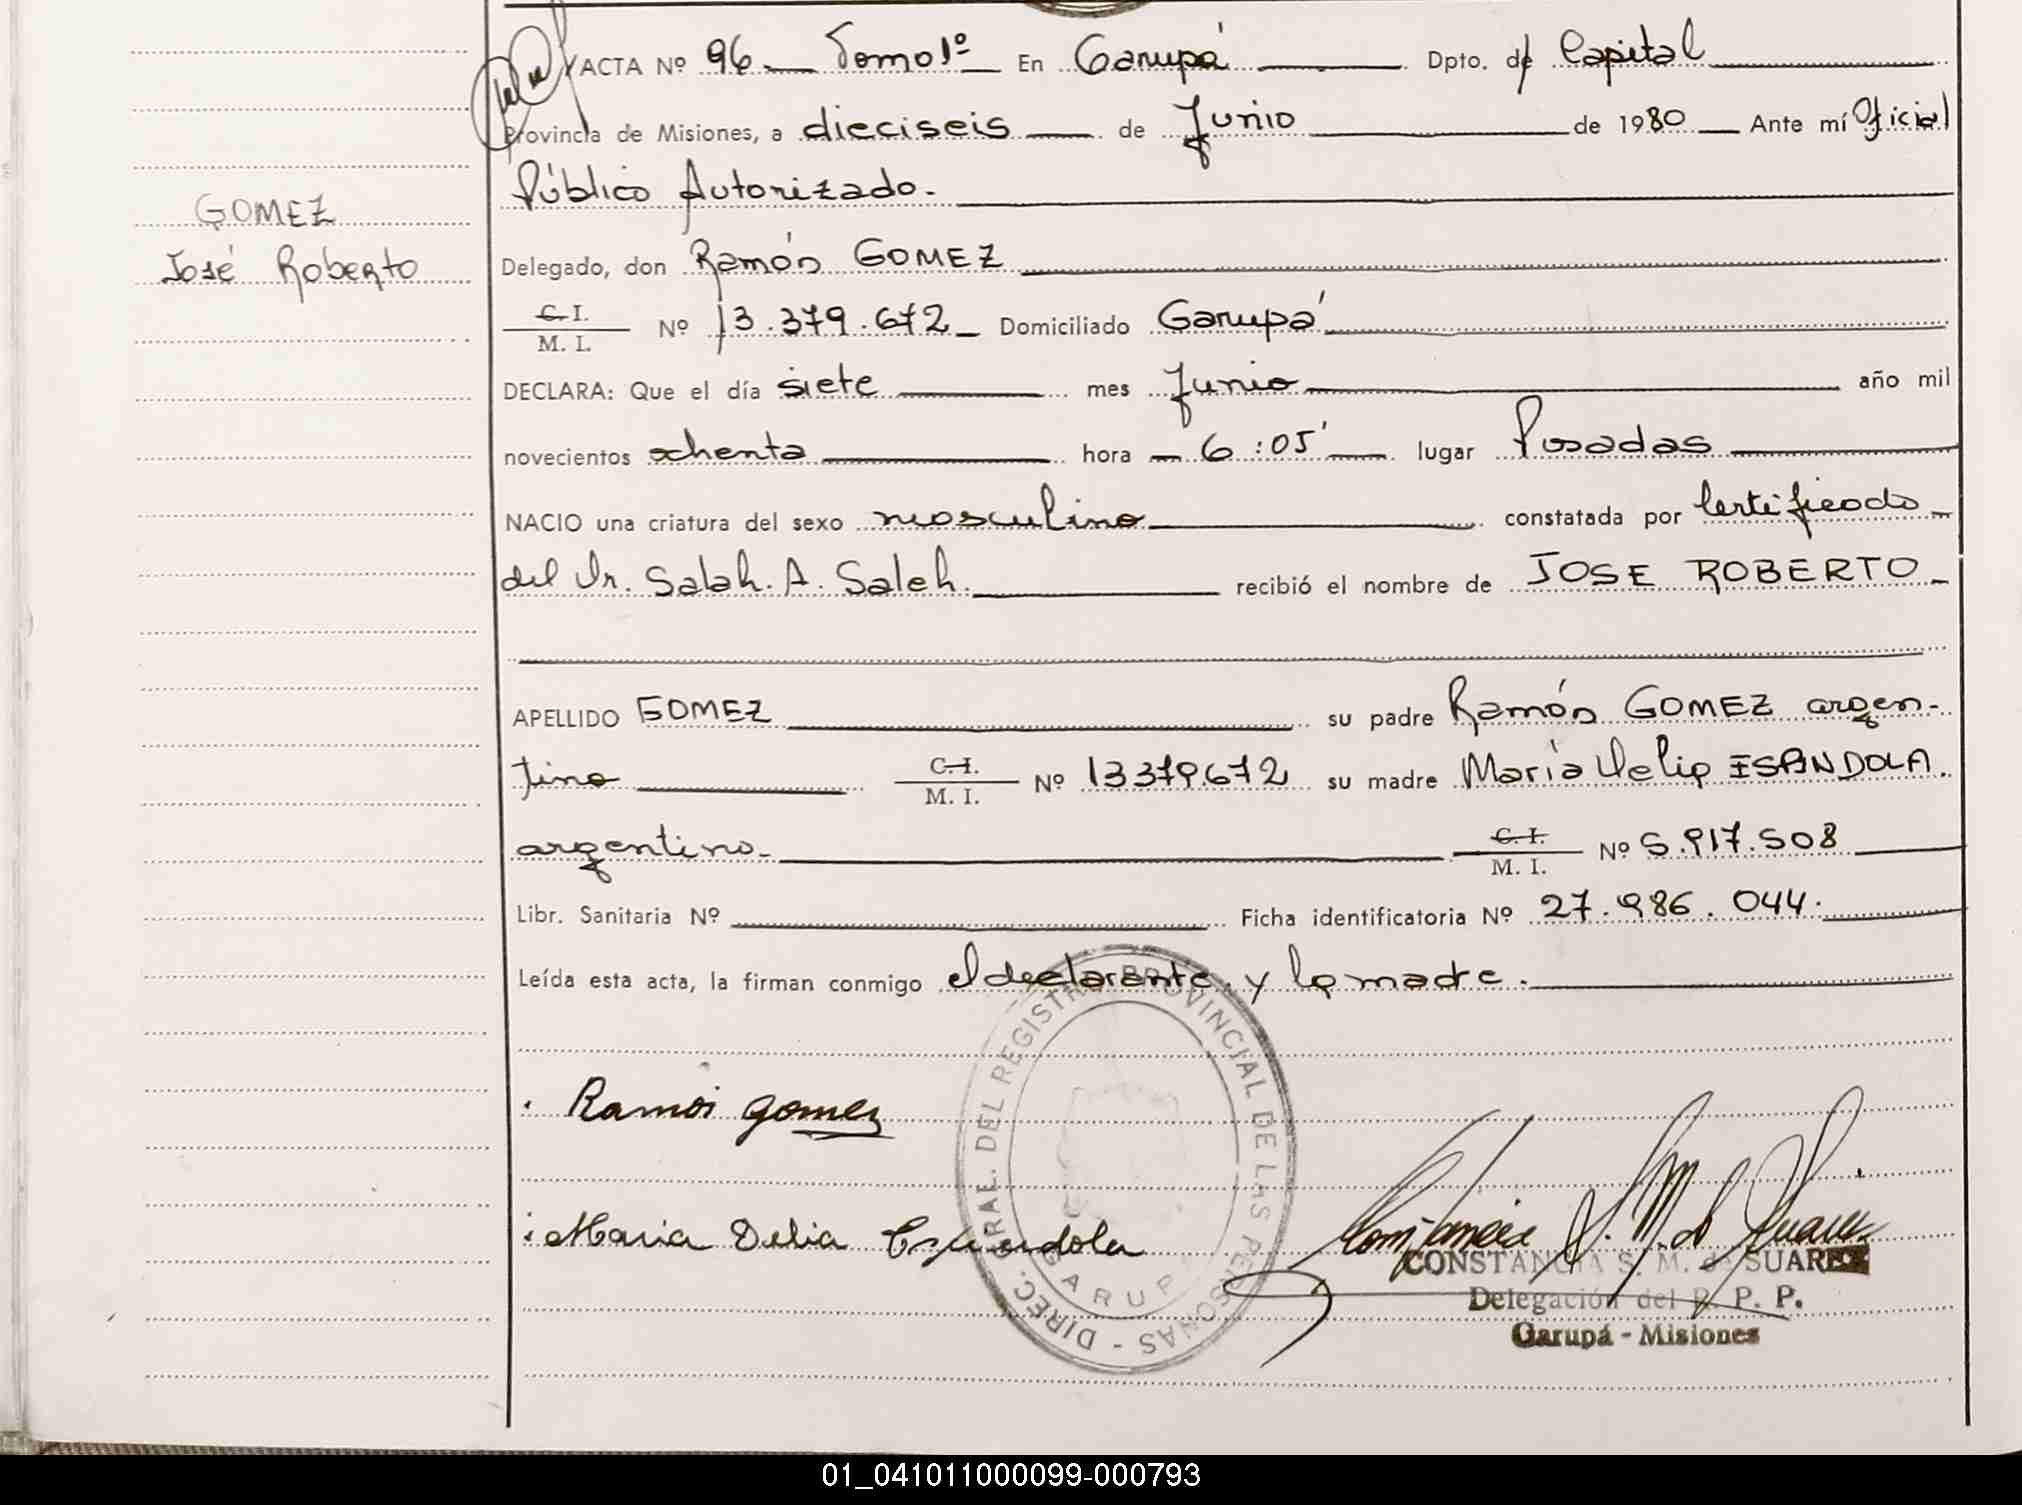 ACTA Nº 96 Tomo 1º En Garupá Dpto. de Capital
Provincia de Misiones, a dieciseis de Junio de 1980 Ante mí Oficial
Público Autorizado.
GOMEZ
José Roberto
Delegado, don Ramón GOMEZ
C. I.
M. I. Nº 13.379.672 Domiciliado Garupá
DECLARA: Que el día siete mes Junio año mil
novecientos ochenta hora 6:05' lugar Posadas
NACIO una criatura del sexo masculino constatada por Certificado
del Dr. Salah. A. Saleh. recibió el nombre de JOSE ROBERTO
APELLIDO GOMEZ su padre Ramón GOMEZ argen-
tino C. I.
M. I. Nº 13379.672 su madre María Delia ESPINDOLA.
argentina C. I.
M. I. Nº 5.917.508
Libr. Sanitaria Nº Ficha identificatoria Nº 27.986.044.
Leída esta acta, la firman conmigo el declarante y la madre.
Ramón gomez
Maria Delia Espindola
DIREC. GRAL. DEL REGISTRO PROVINCIAL DE LAS PERSONAS -
GARUPA
Constancia S. M. de Suarez
CONSTANCIA S. M. de SUAREZ
Delegación del R. P. P.
Garupá - Misiones
01_041011000099-000793